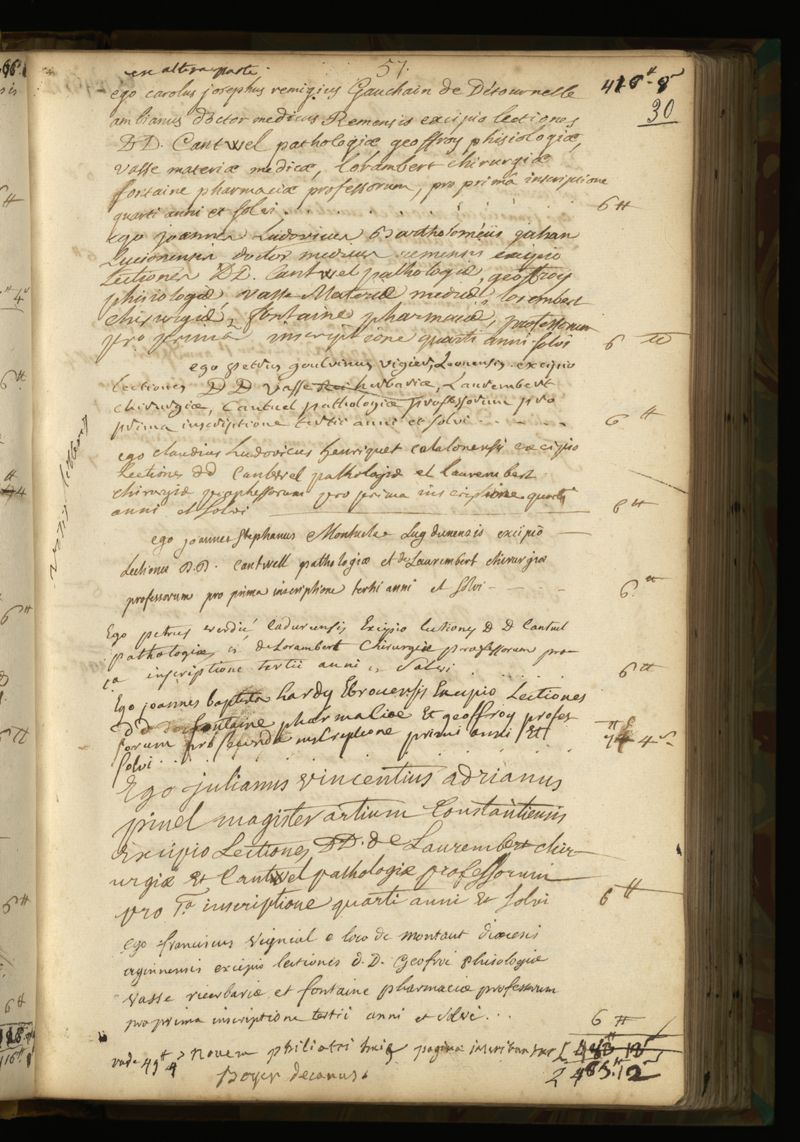 ex altera parte.
57.
416 ʰ 8 ˢ
30
ego carolus josephus remigius Gauchain de Détournelle
ambianus doctor medicus Remensis excipio lectiones
DD. Cantwel pathologiæ geoffroy phisiologiæ,
vasse materiæ medicæ, lorambert chirurgiæ
fontaine pharmaciæ professorum, pro prima inscriptione
quarti anni et solvi . . . . . . . 6 ʰ
ego joannes Ludovicus Bartholoméus gahan
Lucionensis doctor medicus remensis excipio
Lectiones DD. Cantwel pathologiæ, geoffroy
phisiologiæ vasse Materiæ medicæ, lorembert
chirurgiæ, fontaine pharmaciæ, professorum
pro prima inscriptione quarti anni solvi 6 ʰ
ego petrus vigier, Leonensis excipio
lectiones DD vasse herbariæ, Laurembert
chirurgiæ, Cantuel pathologiæ professorum pro
prima inscriptione tertii anni et solvi - - - - 6 ʰ
ego claudius Ludovicus henriquet catalonensis excipio
lectiones dd Cantwel pathologiæ et laurembert
chirurgiæ prophessorum pro prima inscriptione quarti
anni et solvi 6 ʰ
ego joannes stephanus Montucla Lugdunensis excipio
lectiones D.D. Cantwell pathologiæ et de Laurembert chirurgiæ
professorum pro prima inscriptione tertii anni et solvi - - - 6 ʰ
Ego petrus verdié Cadurcensis Excipio lectiones D D Cantuel
pathologiæ et de Lorambert Chirurgiæ professorum pro
inscriptione tertii anni et solvi . . . 6 ʰ
Ego joannes baptista hardy Ebroicensis Excipio Lectiones
d d fontaine pharmaciæ Et geoffroy profes-
sorum pro secunda inscriptione primi anni Et
solvi . . . . . . . . 4 ˢ
Ego julianus vincentius adrianus
pinel magister artium Constantiensis
Excipio Lectiones DD. de Laurembert chir-
urgiæ Et Cantwel pathologiæ professorum
pro 1ª inscriptione quarti anni Et solvi 6 ʰ
ego franciscus vignial e loco de montaut diœcesis
aginnensis excipio lectiones d.D. Geofroi phisologiæ
vasse et fontaine pharmaciæ professorum
pro prima inscriptione tertii anni et solvi . . . 6 ʰ
novem philiatri huiq pagina inscribuntur
Boyer decanus.
485 ʰ 12 ˢ